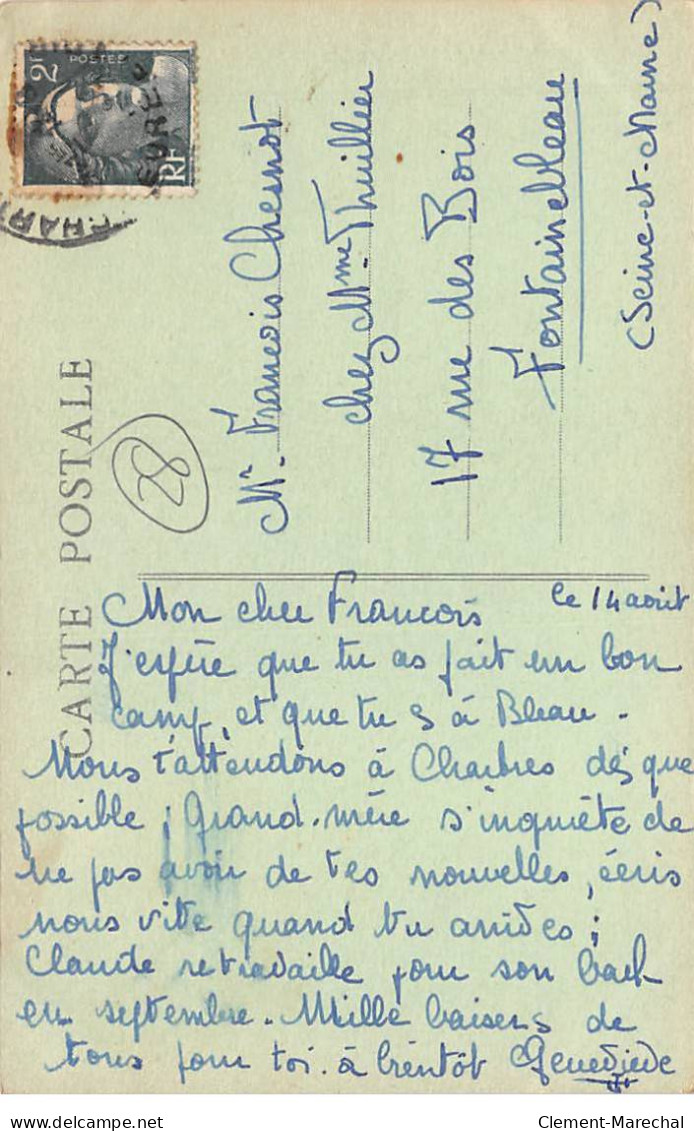 CARTE POSTALE
2F
POSTES
RF
28
Mr François Chesnot
chez Mme Thuillier
17 rue des Bois
Fontainebleau
(Seine-et-Marne)
le 14 août
Mon cher François
J'espère que tu as fait un bon
camp, et que tu es à Bleau.
Nous t'attendons à Chartres dès que
possible; Grand-mère s'inquiète de
ne pas avoir de tes nouvelles, écris
nous vite quand tu arrives;
Claude retravaille pour son bach
en septembre. Mille baisers de
tous pour toi. à bientôt Geneviève
Clement-Marechal